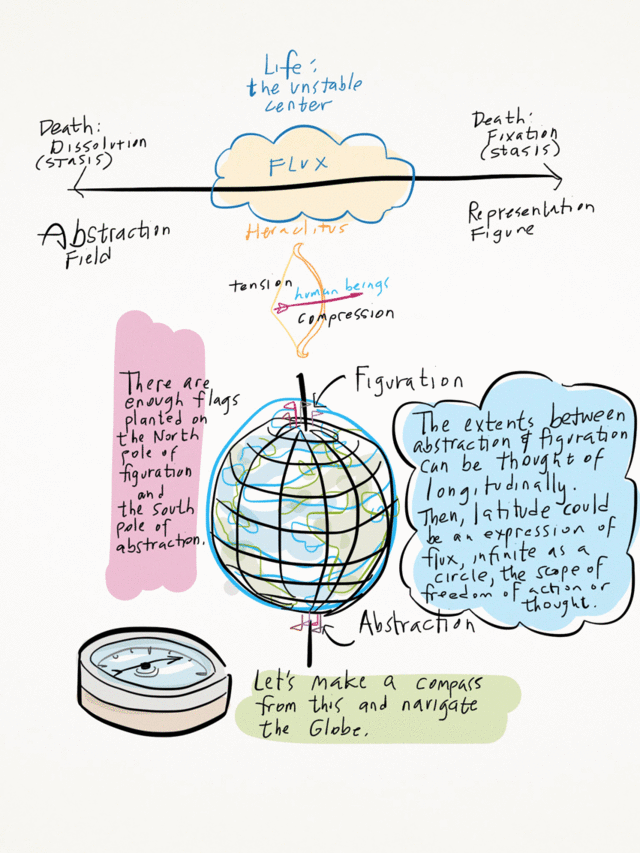 Life:
the unstable
center
Death:
Dissolution
(STASIS)
Death:
Fixation
(stasis)
FLUX
Abstraction
Field
Representation
Figure
Heraclitus
tension
human beings
compression
Figuration
There are
enough flags
planted on
the North
pole of
figuration
and
the south
pole of
abstraction.
The extents between
abstraction & figuration
can be thought of
longitudinally.
Then, latitude could
be an expression of
flux, infinite as a
circle, the scope of
freedom of action or
thought.
Abstraction
Let's make a compass
from this and navigate
the Globe.